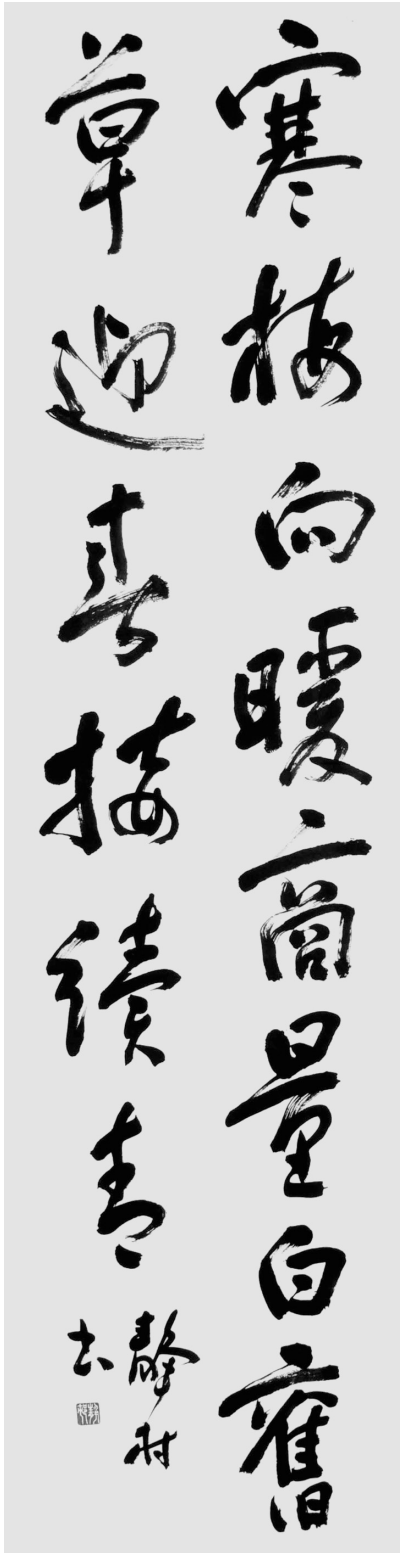 寒梅向暖商量白舊
草迎春接續青
靜村
書